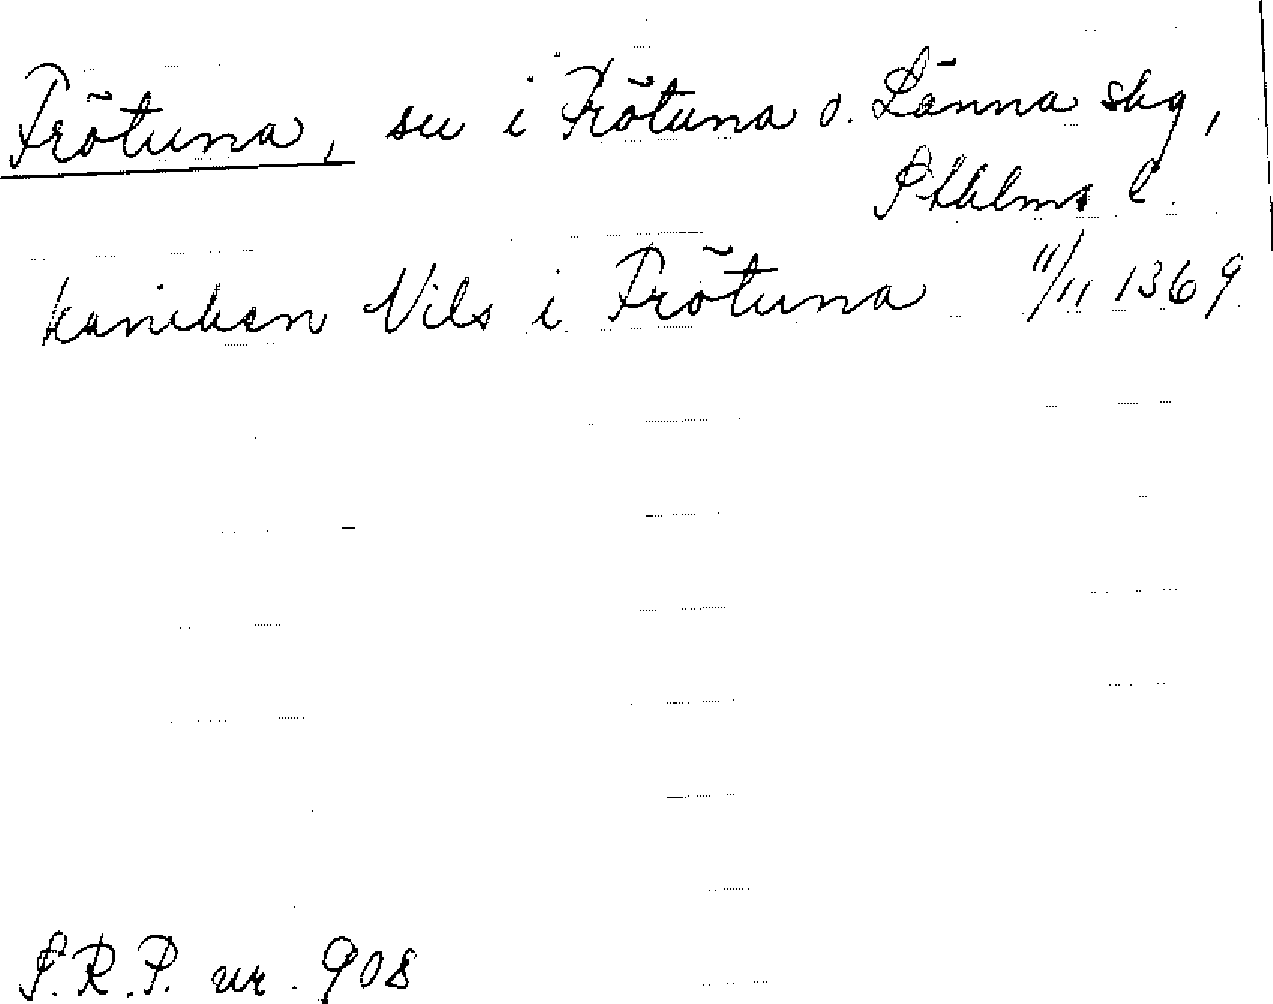 Frötuna, sn i Frötuna o. Länna skg,
Sthlms l.
kaniken Nils i Frötuna 11/11 1369.
S.R.P. nr. 908